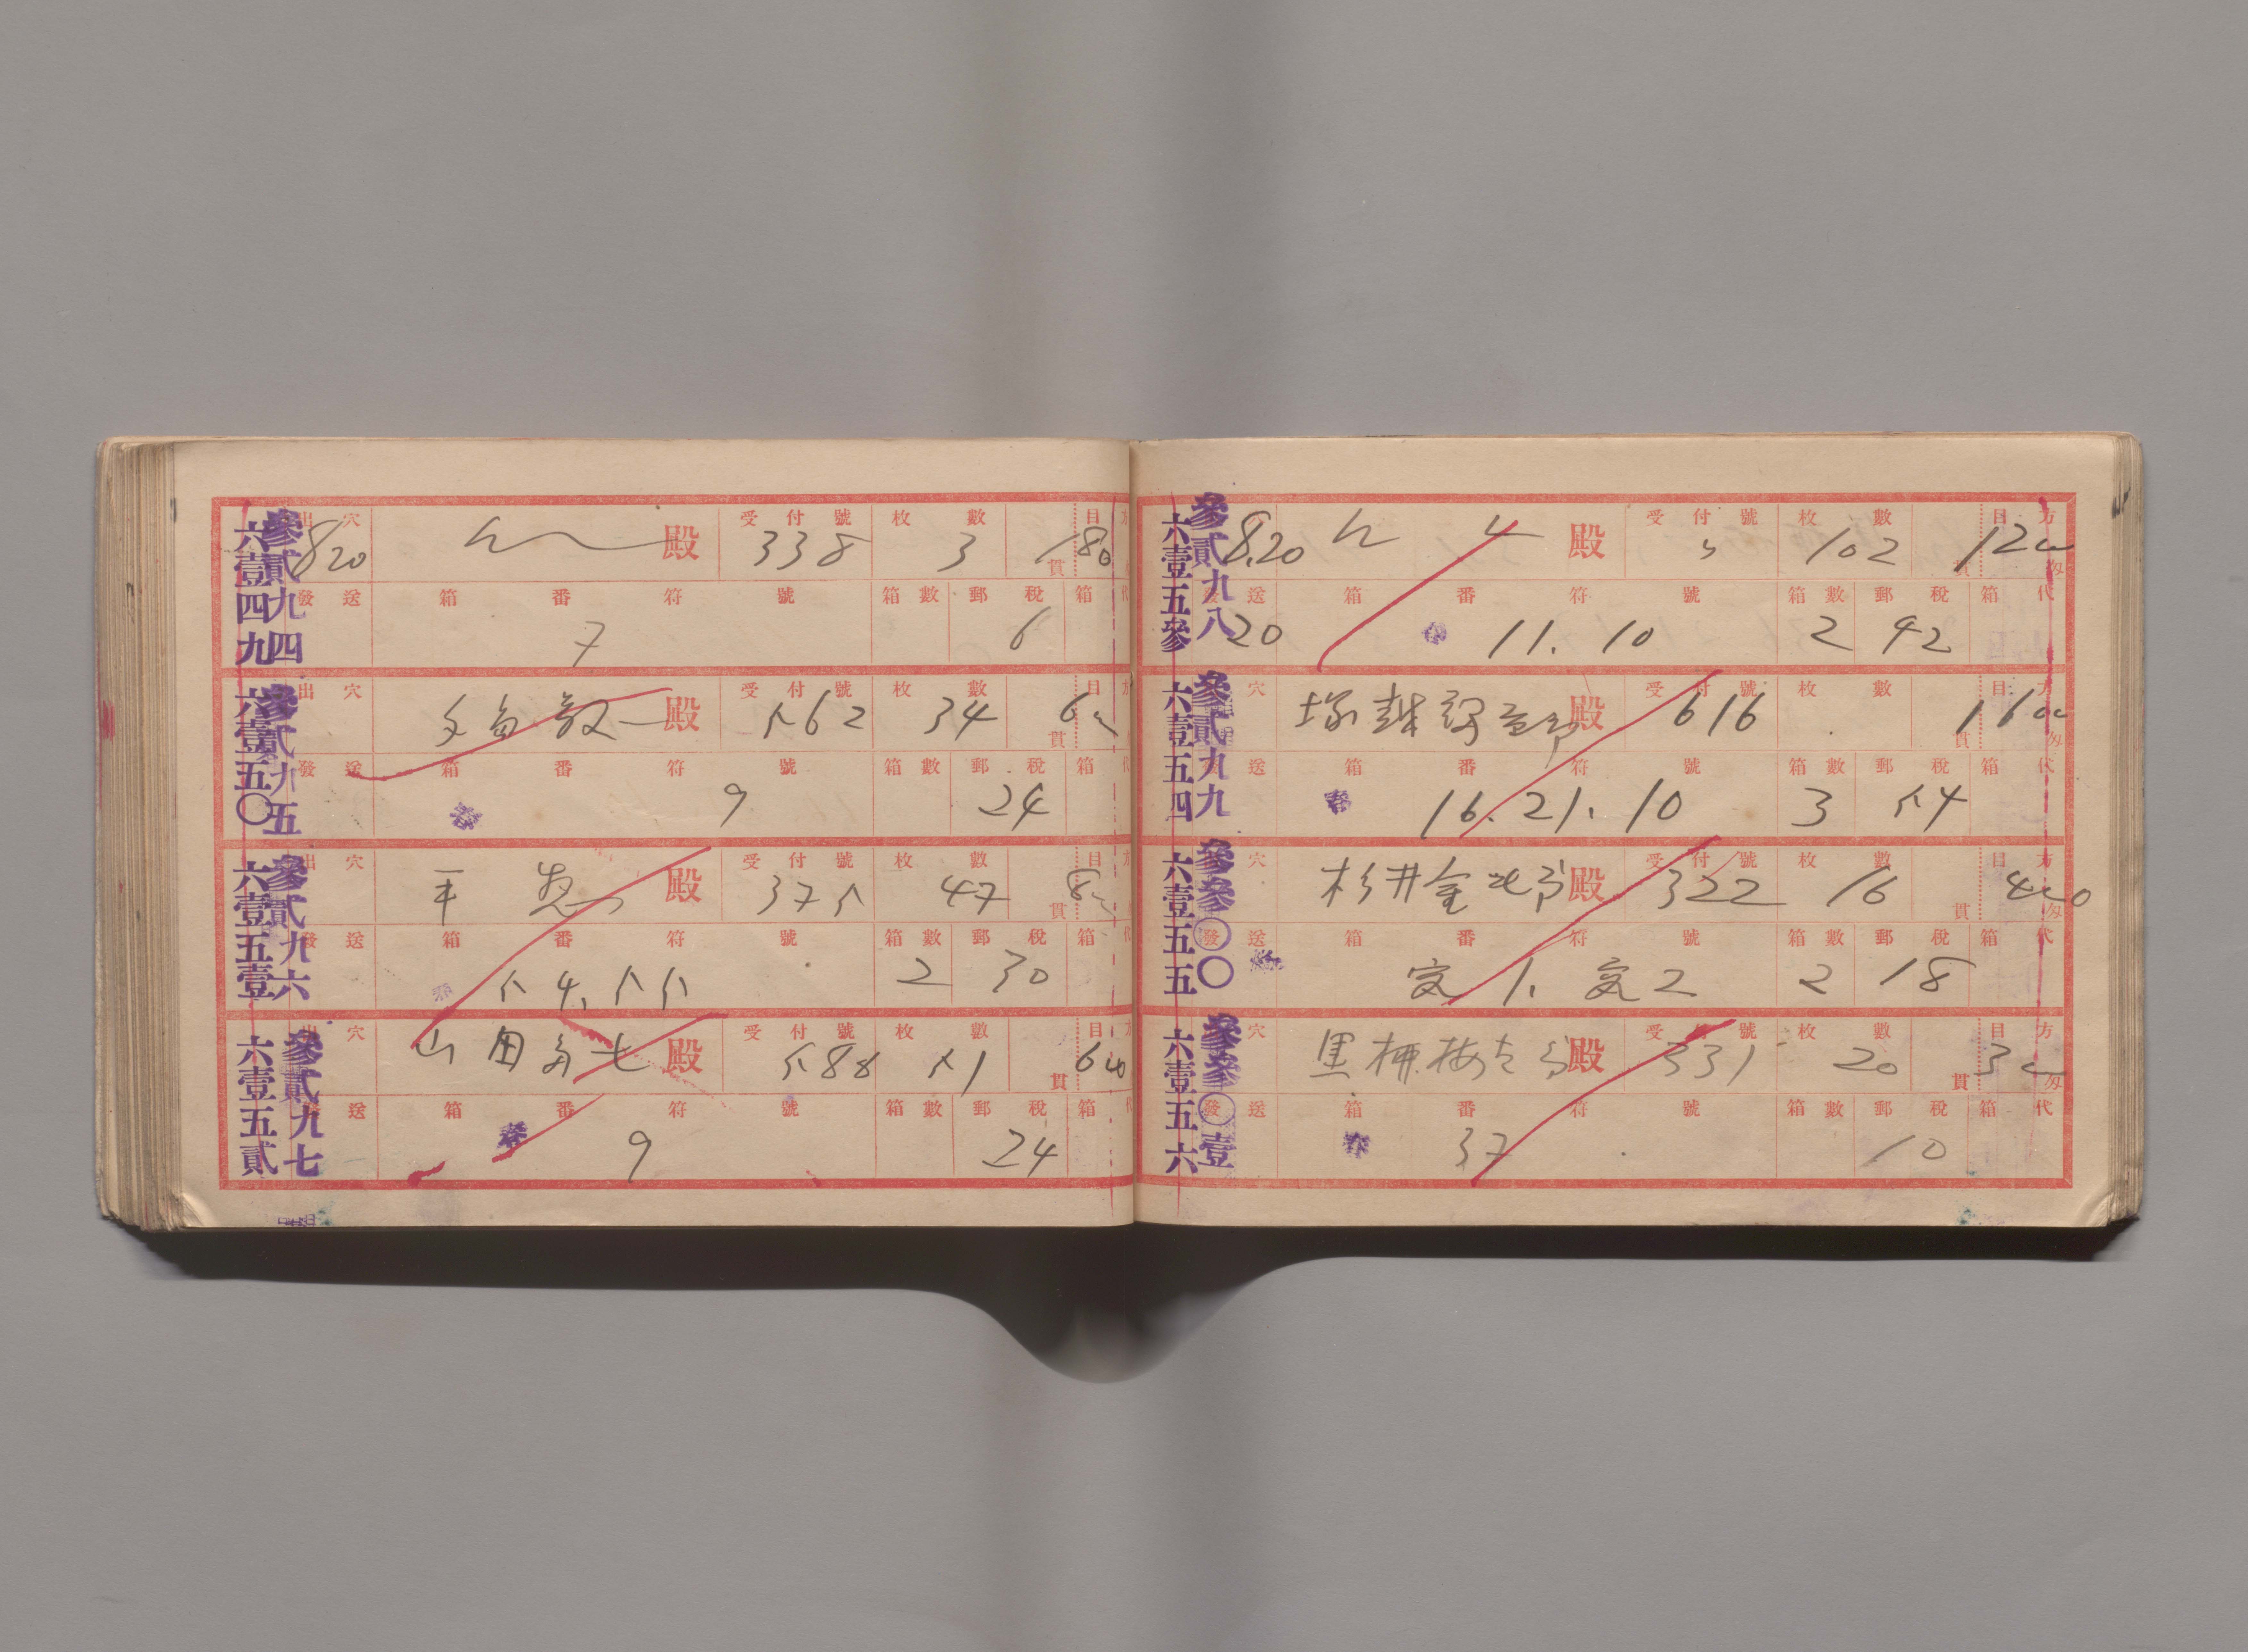 六壹四九 參貳九四
出穴 8 20 殿 受付號 338 枚數 3 貫 目方 180
發送 箱番符號 7 箱數 郵稅 6 箱代
六壹五〇 參貳九五
出穴 殿 受付號 562 枚數 34 貫 目方
發送 箱番符號 9 箱數 郵稅 24 箱代
六壹五壹 參貳九六
出穴 平 殿 受付號 375 枚數 47 貫 目方
發送 箱番符號 54, 55 箱數 2 郵稅 30 箱代
六壹五貳 參貳九七
出穴 山田 七 殿 受付號 588 枚數 51 貫 目方 600
發送 箱番符號 9 箱數 郵稅 24 箱代
六壹五參 參貳九八
穴 8.20 殿 受付號 枚數 102 貫 目方 1200 匁
送 20 箱番符號 11. 10 箱數 2 郵稅 92 箱代
六壹五四 參貳九九
穴 塚越 殿 受付號 616 枚數 貫 目方 1600 匁
送 箱番符號 16. 21. 10 箱數 3 郵稅 54 箱代
六壹五五 參參〇〇
穴 杉井金 郎 殿 受付號 322 枚數 16 貫 目方 400 匁
發送 箱番符號 1. 2 箱數 2 郵稅 18 箱代
六壹五六 參參〇壹
穴 黒 梅 殿 受付號 331 枚數 20 貫 目方 匁
發送 箱番符號 37 箱數 郵稅 10 箱代